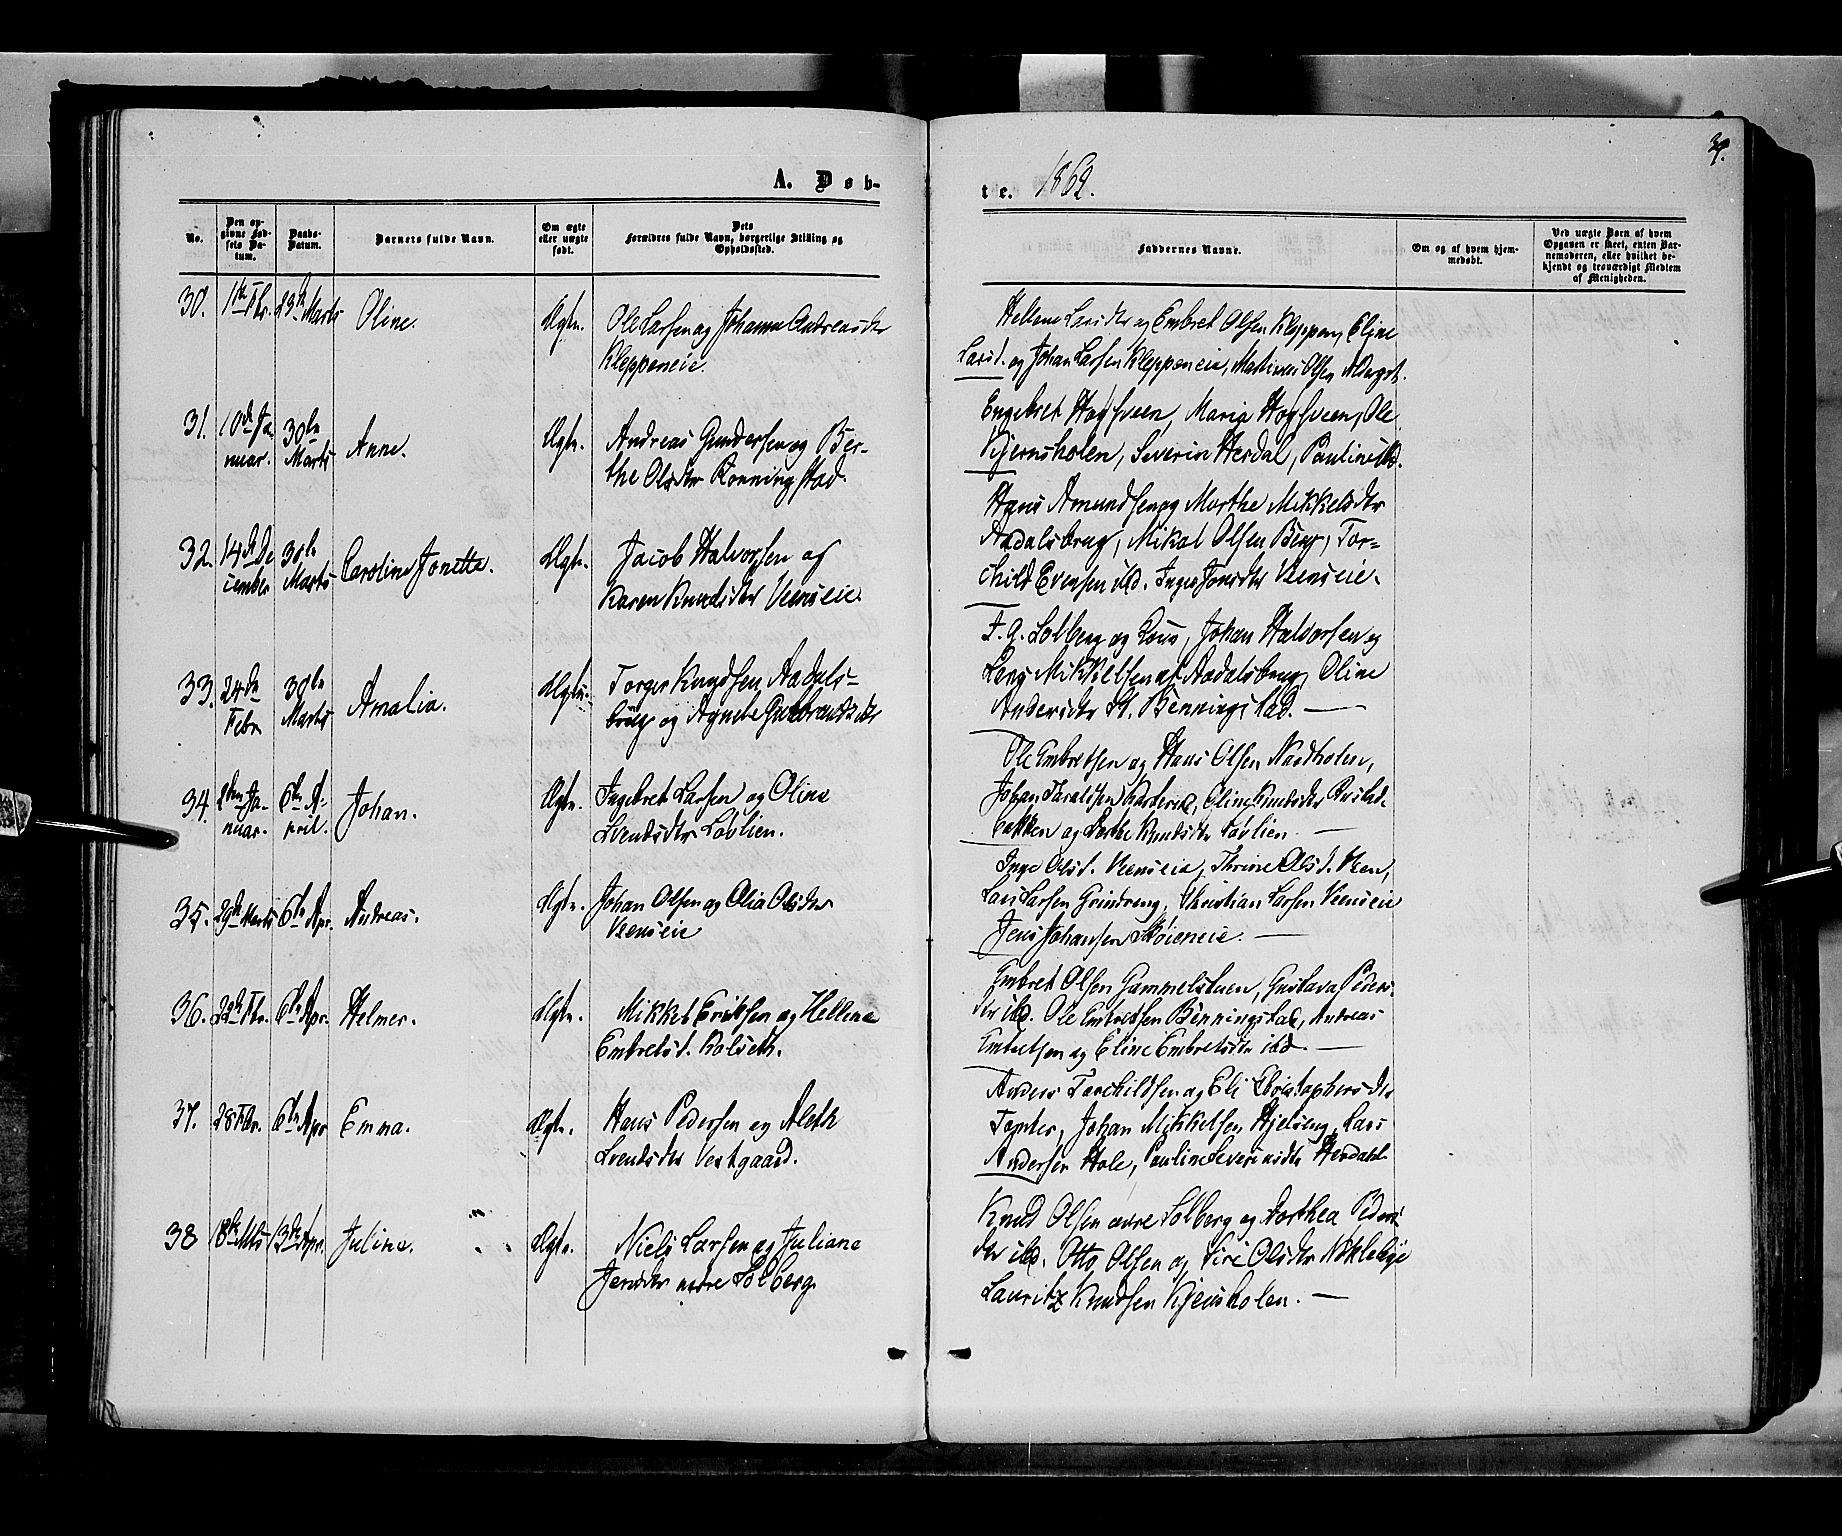 A. Døb-
te. 1862.
39.
No.
Den op-
givne Fød-
sels Da-
tum.
Daabs-
Datum.
Barnets fulde Navn.
Om ægte
eller uægte
født.
Dets
Forældres fulde Navn, borgerlige Stilling og
Opholdssted.
Faddernes Navne.
Om og af hvem hjem-
medøbt.
Ved uægte Børn af hvem
Opgaven er skeet, enten Bar-
nemoderen, eller hvilket be-
kjendt og troværdigt Medlem
af Menigheden.
30. 1ste Fbr. 23de Marts Oline. Ugte. Ole Larsen og Johanne Andreasdtr
Kleppeneie.
Hellene Larsdtr og Embret Olsen Kleppen, Eline
Larsd. og Johan Larsen Kleppeneie, Mathias Olsen
31. 10de Ja-
nuar. 30te
Marts Anne. Ugte. Andreas Gundersen og Ber-
the Olsdtr Rønningstad.
Engebret Hoghveen, Maria Hoghveen, Ole
Kjernsholen, Severin Herdal, Pauline ibd.
32. 14de De
cember 30te
Marts Caroline Jonette. Ugte. Jacob Halvorsen og
Karen Knudsdtr Veenseie.
Hans Amundsen og Marthe Mikkelsdtr
Aadalsbrug, Mikal Olsen Berg, Tor-
child Evensen ibd. Inger Jonsdtr Veenseie.
33. 24de
Febr. 30te
Marts Amalia. Ugte. Torger Knudsen Aadals-
brug og Agnete Gulbrandsdtr
F. G. Solberg og Kone, Johan Halvorsen og
Lars Mikkelsen af Aadalsbrug, Oline
Andersdtr St. Benningstad.
34. Ja-
nuar. 6te A-
pril. Johan. Ugte. Ingebret Larsen og Oline
Svendsdtr Løvlien.
Ole Embretsen og Hans Olsen Nastholen,
Johan Taraldsen Oline Knudsdtr
bakken og Berthe Knudsdtr Løvlien.
35. 29de Marts 6te Apr. Andreas. Ugte. Johan Olsen og Olia Olsdtr
Veenseie
Inge Olsd. Veenseie, Thrine Olsd. Veen,
Lars Larsen Grindreng, Christian Larsen Veenseie
Jens Johansen Skøieneie.
36. 22de Fbr. 6te Apr. Helmer. Ugte. Mikkel Eriksen og Hellene
Embretsd. Kolseth.
Embret Olsen Gammelstuen, Gustava Peders-
dtr ibd. Ole Embretsen Benningstad, Andreas
Embretsen og Eline Embretsdtr ibd.
37. 28 Fbr. 6te Apr Emma. Ugte. Hans Pedersen og Aleth
Svendsdtr Vestgaard.
Anders Torchildsen og Eli Christophersdtr
Tomter, Johan Mikkelsen Hjelseng, Lars
Andersen Hole, Pauline Severinsdtr Herdahl
38 18de Mts 13de Apr. Juline. Ugte. Niels Larsen og Juliane
Jensdtr nedre Solberg
Knud Olsen øvre Solberg og Dorthea Peders-
dtr ibd. Otto Olsen og Siri Olsdtr Nøklebye
Lauritz Knudsen Kjernsholen.